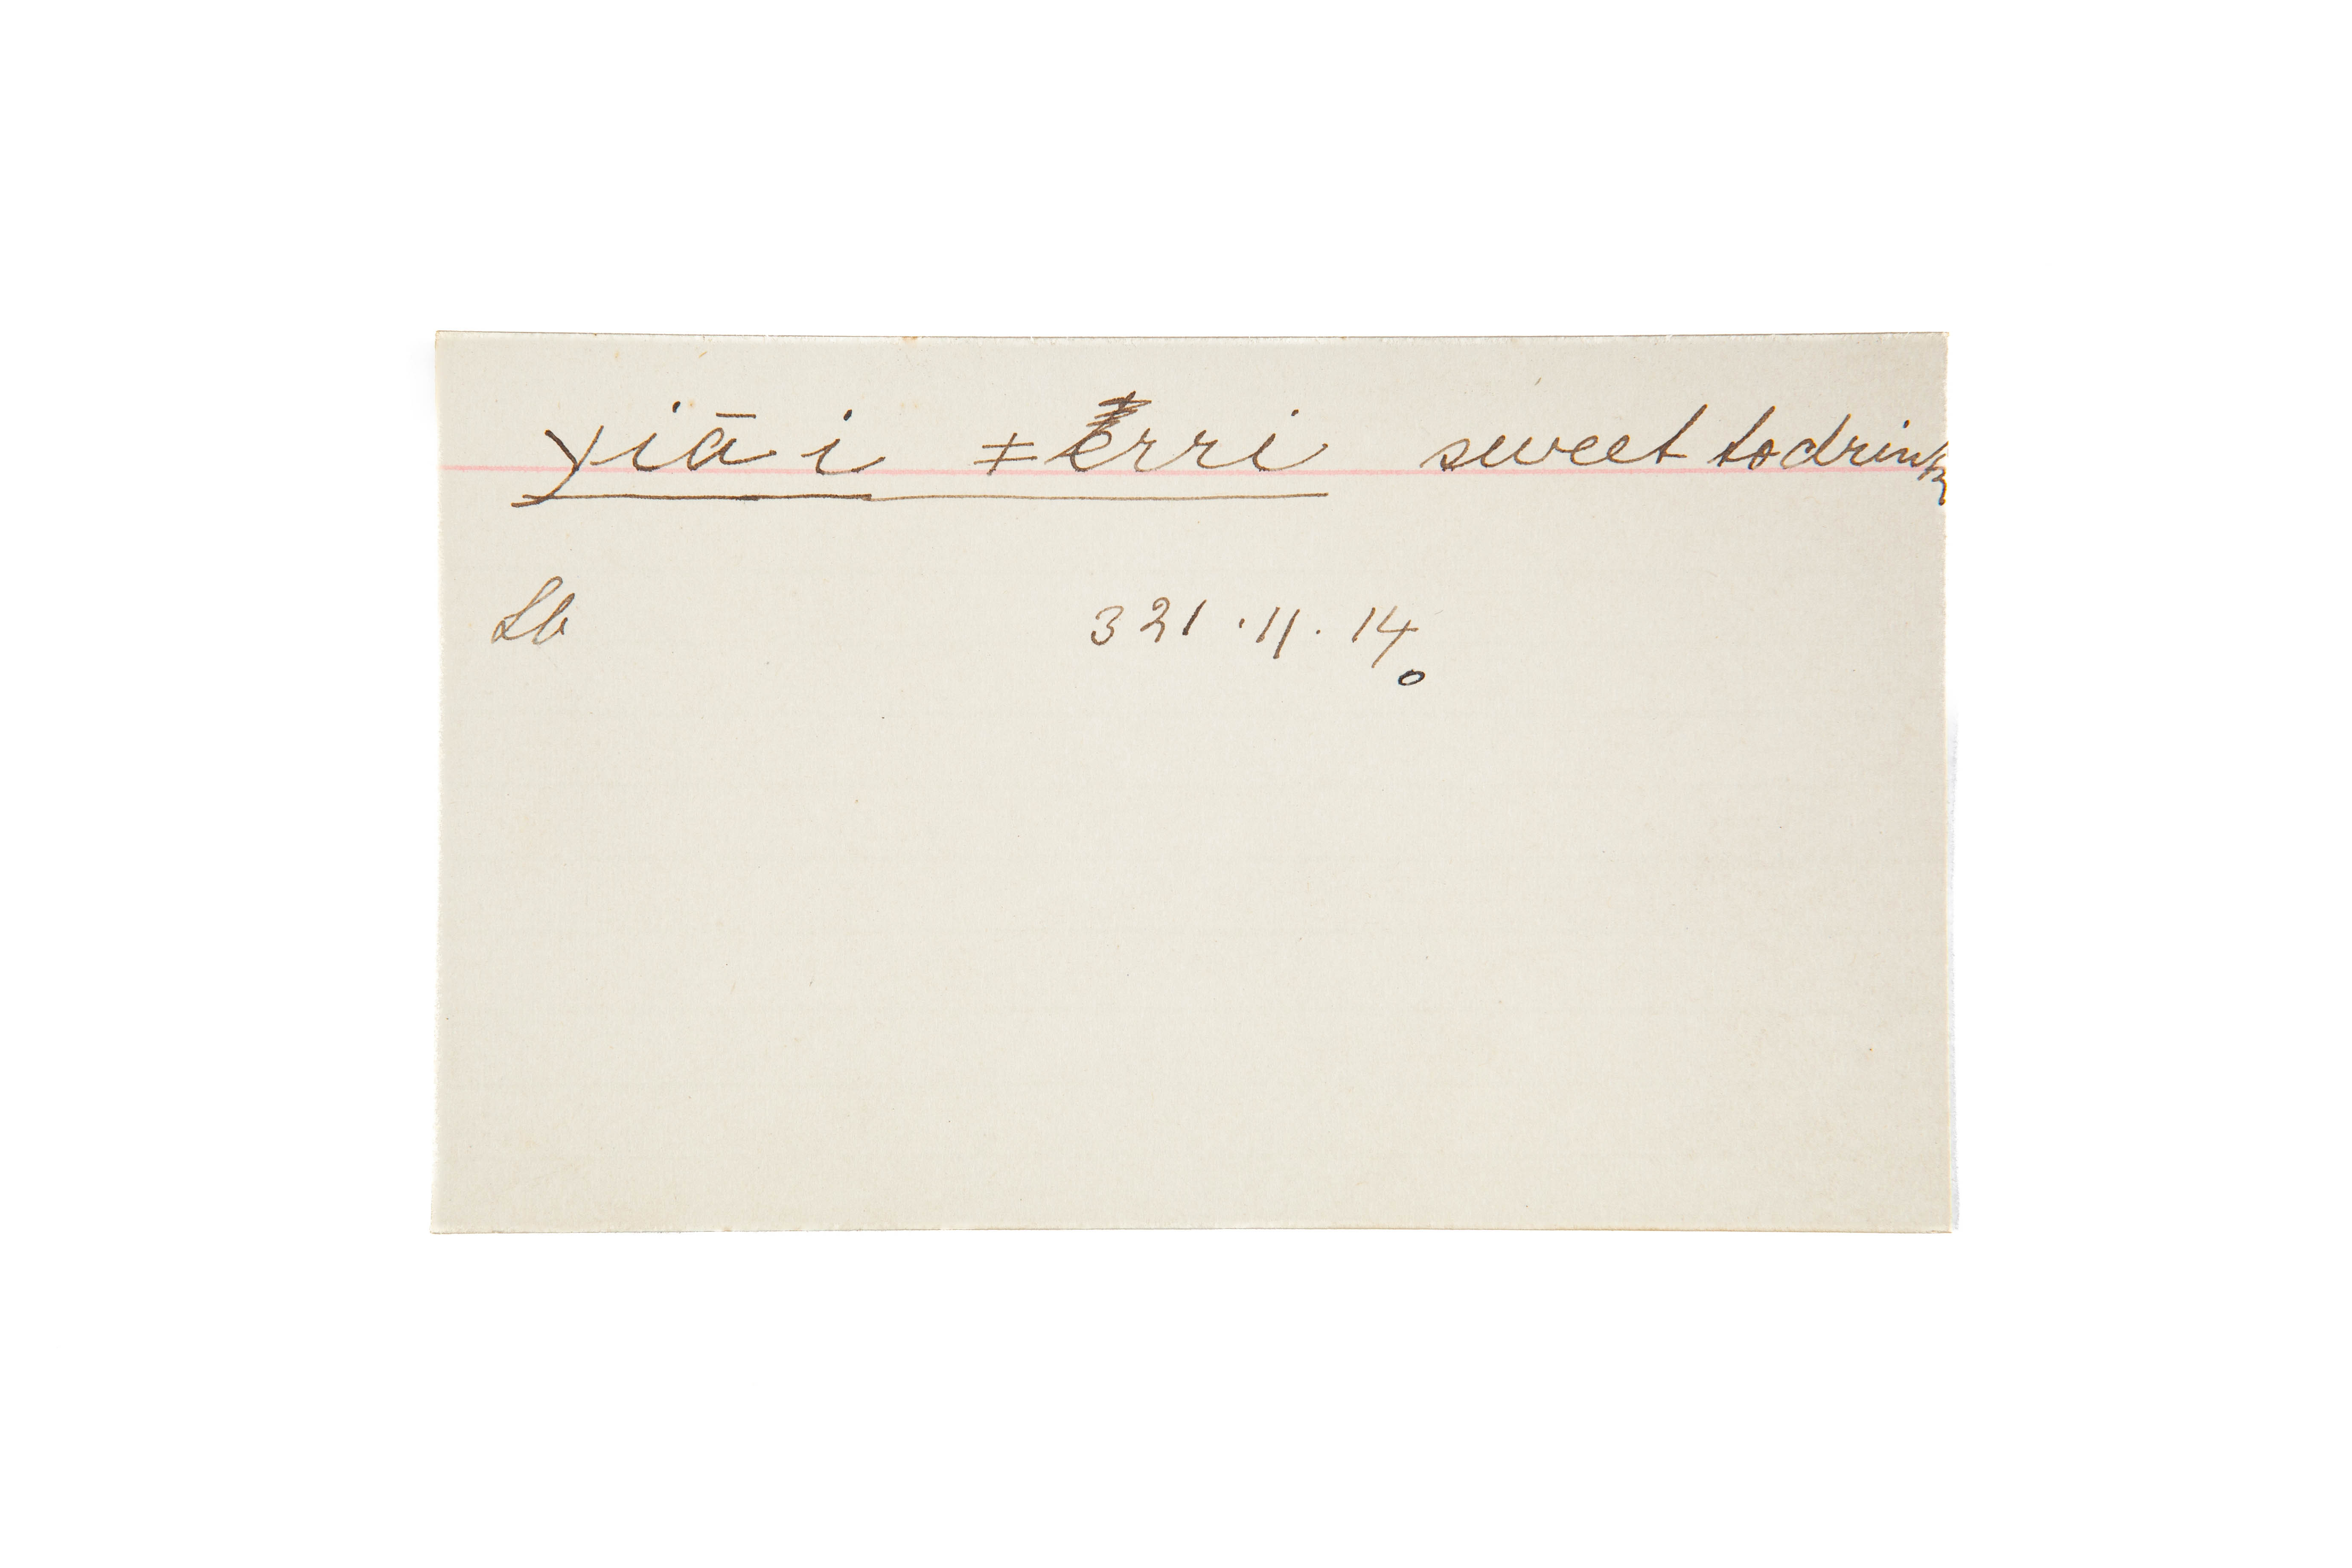 yiā i ǂerri sweet to drink
Lb
321 · 11 · 14